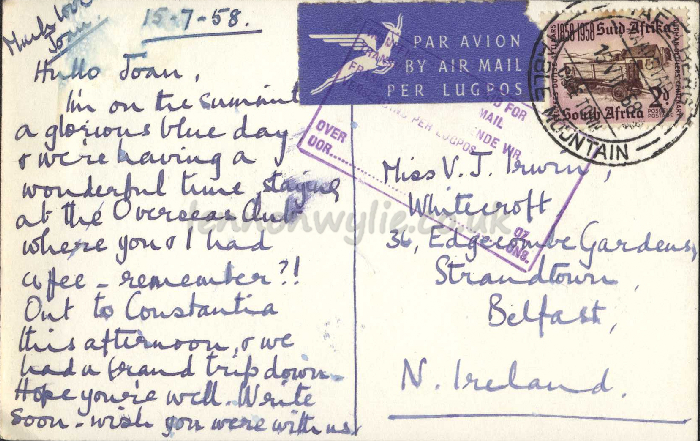 Much love
Joan.
15-7-58.
Hullo Joan,
I'm on the summit
a glorious blue day
& we're having a
wonderful time, staying
at the Overseas Club
where you & I had
coffee - remember?!
Out to Constantia
this afternoon, & we
had a grand trip down.
Hope you're well. Write
soon - wish you were with us.
PAR AVION
BY AIR MAIL
PER LUGPOS
1858-1958 Suid Afrika
2d
South Africa
TABLE MOUNTAIN
FOR
MAIL
PER LUGPOS
ENDE WR.
OVER
OOR
OZ.
ONS.
Miss V. J. Irwin,
Whitecroft
36, Edgecombe Gardens,
Strandtown,
Belfast,
N. Ireland.
lennonwylie.co.uk